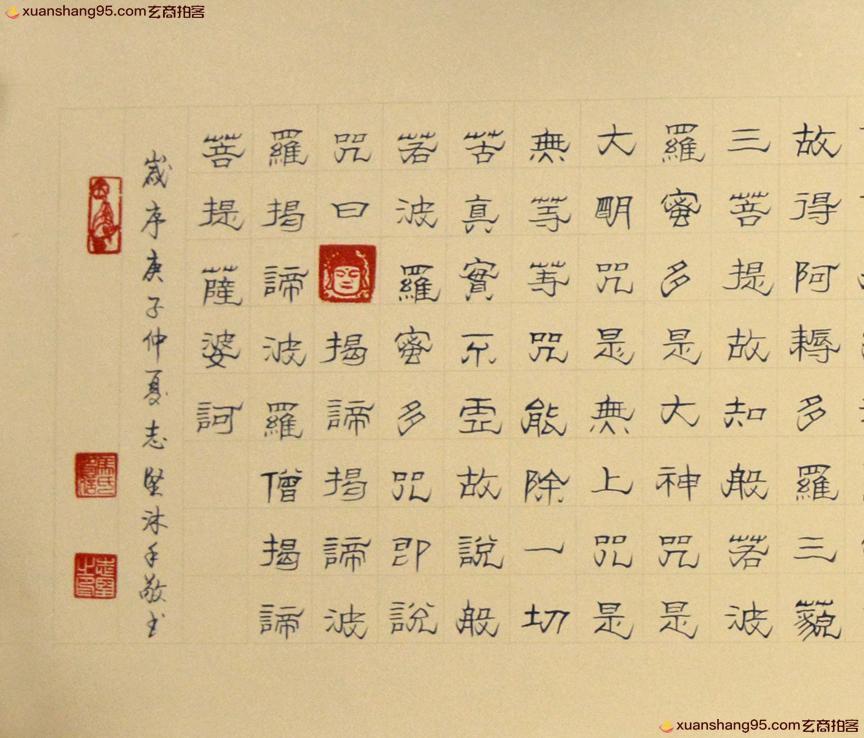 xuanshang95.com玄商拍客
故得阿耨多羅三藐
三菩提故知般若波
羅蜜多是大神咒是
大明咒是無上咒是
無等等咒能除一切
苦真實不虛故說般
若波羅蜜多咒即說
咒曰揭諦揭諦波
羅揭諦波羅僧揭諦
菩提薩婆訶
歲序庚子仲夏志堅沐手敬书
志堅之印
xuanshang95.com玄商拍客